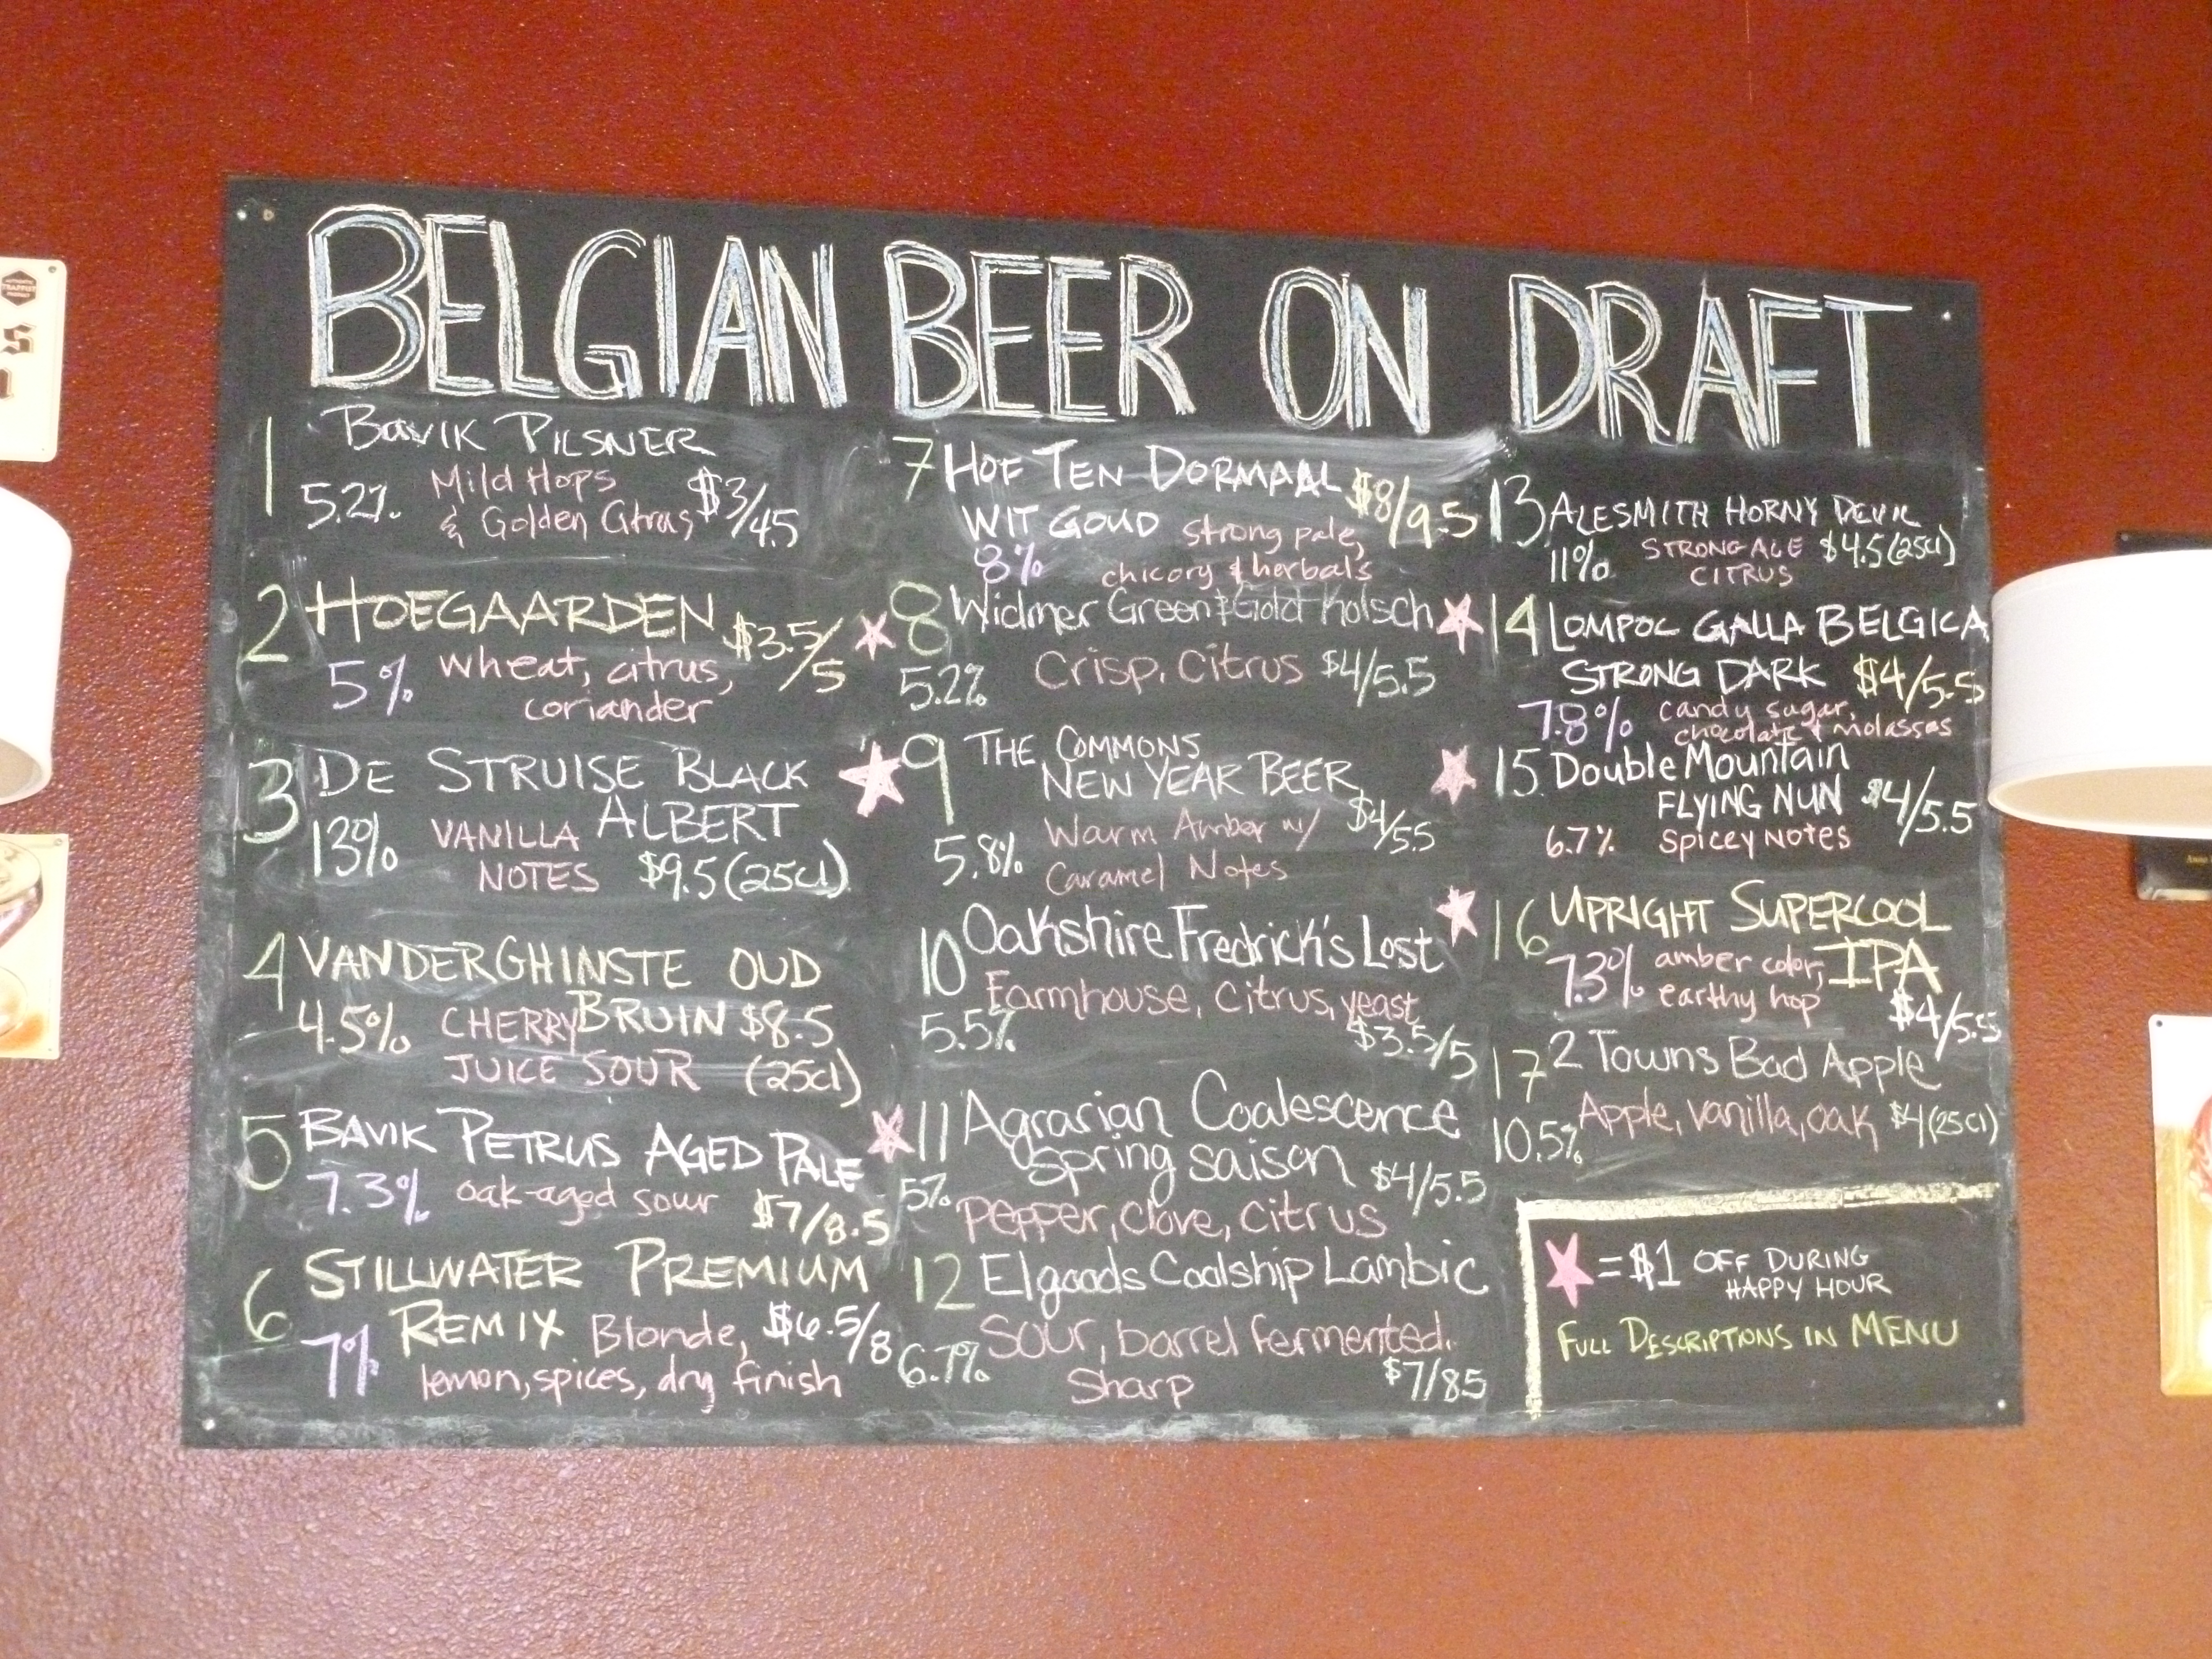 BELGIAN BEER ON DRAFT
1 BAVIK PILSNER
5.2% Mild Hops
& Golden Citrus $3/4.5
2 HOEGAARDEN $3.5/5
5% wheat, citrus,
coriander
3 DE STRUISE BLACK
ALBERT
13% VANILLA
NOTES $9.5 (25cl)
4 VANDERGHINSTE OUD
4.5% CHERRY BRUIN $8.5
JUICE SOUR (25cl)
5 BAVIK PETRUS AGED PALE
7.3% oak-aged sour $7/8.5
6 STILLWATER PREMIUM
REMIX Blonde, $6.5/8
7% lemon, spices, dry finish
7 HOF TEN DORMAAL $8/9.5
WIT GOUD strong pale,
8% chicory & herbals
8 Widmer Green & Gold Kolsch
5.2% Crisp. Citrus $4/5.5
9 THE COMMONS
NEW YEAR BEER
5.8% Warm Amber w/ $4/5.5
Caramel Notes
10 Oakshire Fredrick's Lost
Farmhouse, citrus, yeast
5.5% $3.5/5
11 Agrarian Coalescence
spring saison
5% $4/5.5
pepper, clove, citrus
12 Elgoods Coolship Lambic
Sour, barrel fermented.
6.7% Sharp $7/8.5
13 ALESMITH HORNY DEVIL
11% STRONG ALE $4.5 (25cl)
CITRUS
14 LOMPOC GALLA BELGICA
STRONG DARK $4/5.5
7.8% candy sugar,
chocolate & molasses
15 Double Mountain
FLYING NUN $4/5.5
6.7% Spicey Notes
16 UPRIGHT SUPERCOOL
7.3% amber color, IPA
earthy hop $4/5.5
17 2 Towns Bad Apple
10.5% Apple, vanilla, oak $4 (25cl)
= $1 OFF DURING
HAPPY HOUR
FULL DESCRIPTIONS IN MENU